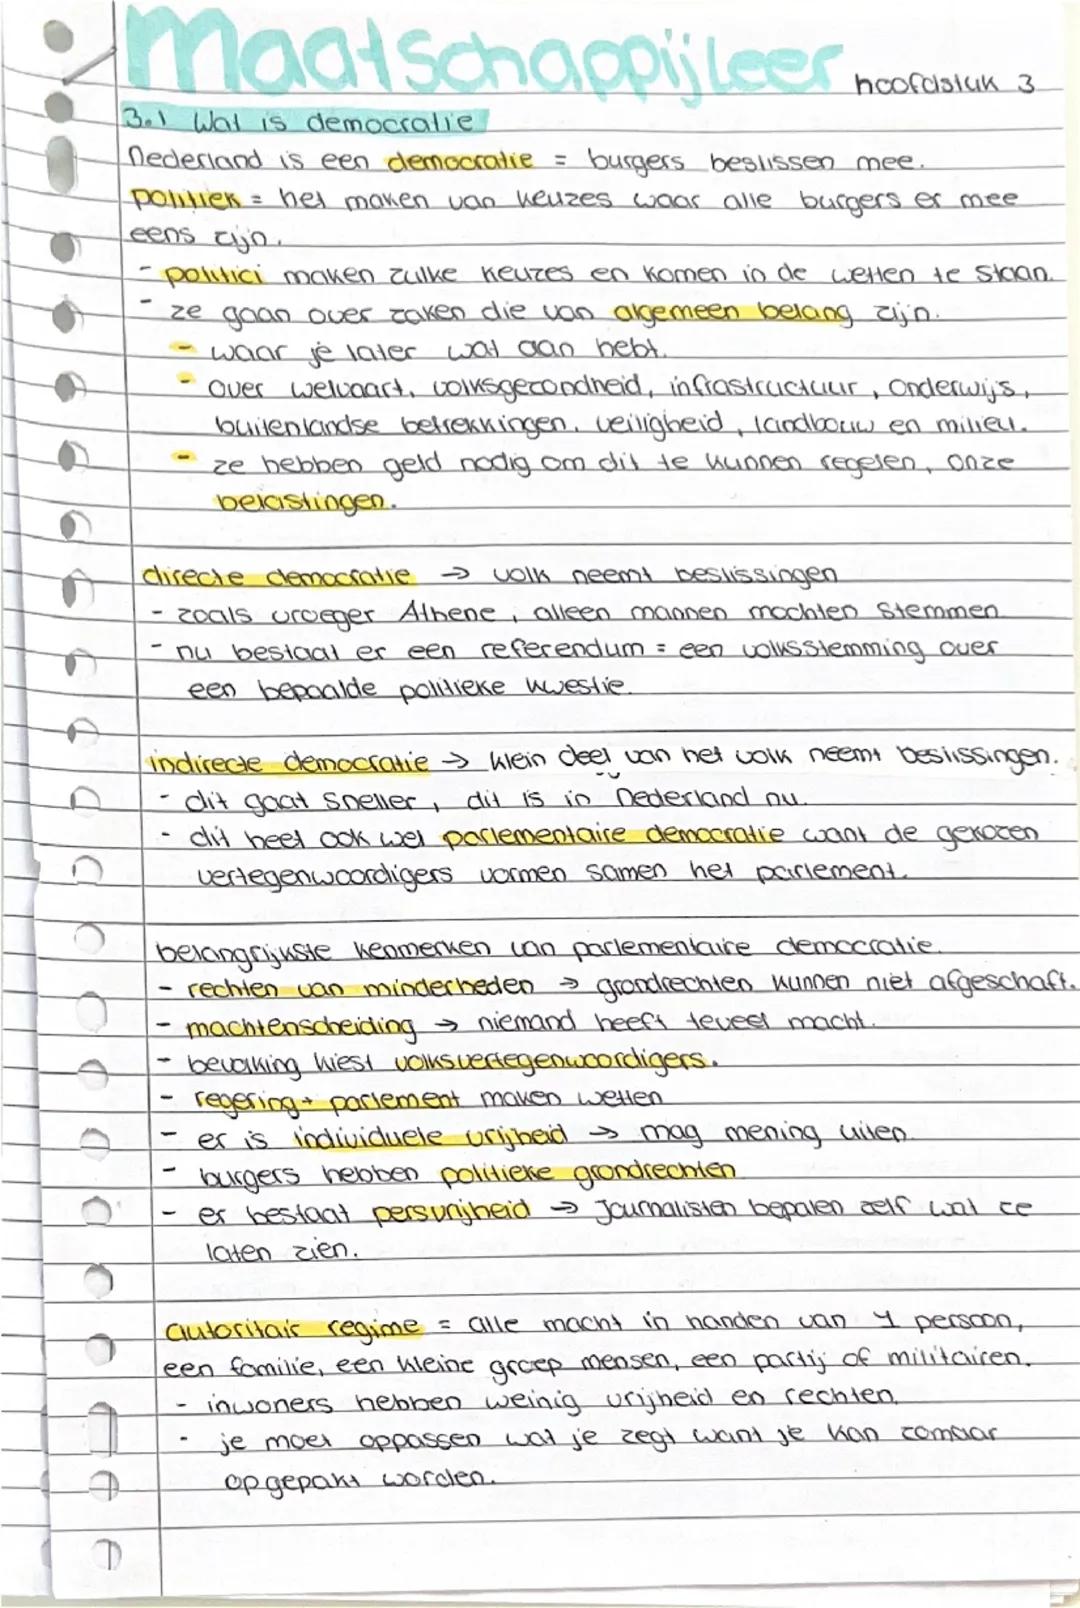 Maatschappijleer hoofdstuk 3
3.1 Wat is democratie
Nederland is een democratie = burgers beslissen mee.
politiek = het maken van keuzes waar alle burgers er mee
eens zijn.
- politici maken zulke keuzes en komen in de wetten te staan.
- ze gaan over zaken die van algemeen belang zijn.
- waar je later wat aan hebt.
- over welvaart, volksgezondheid, infrastructuur, onderwijs,
buitenlandse betrekkingen, veiligheid, landbouw en milieu.
- ze hebben geld nodig om dit te kunnen regelen, onze
belastingen.
directe democratie → volk neemt beslissingen
- zoals vroeger Athene, alleen mannen mochten stemmen.
- nu bestaat er een referendum = een volksstemming over
een bepaalde politieke kwestie.
indirecte democratie → klein deel van het volk neemt beslissingen.
- dit gaat sneller, dit is in Nederland nu.
- dit heet ook wel parlementaire democratie want de gekozen
vertegenwoordigers vormen samen het parlement.
belangrijkste kenmerken van parlementaire democratie.
- rechten van minderheden → grondrechten kunnen niet afgeschaft.
- machtenscheiding → niemand heeft teveel macht.
- bevolking kiest volksvertegenwoordigers.
- regering + parlement maken wetten
- er is individuele vrijheid → mag mening uiten.
- burgers hebben politieke grondrechten
- er bestaat persvrijheid → journalisten bepalen zelf wat ze
laten zien.
autoritair regime = alle macht in handen van 1 persoon,
een familie, een kleine groep mensen, een partij of militairen.
- inwoners hebben weinig vrijheid en rechten.
- je moet oppassen wat je zegt want je kan zomaar
opgepakt worden.